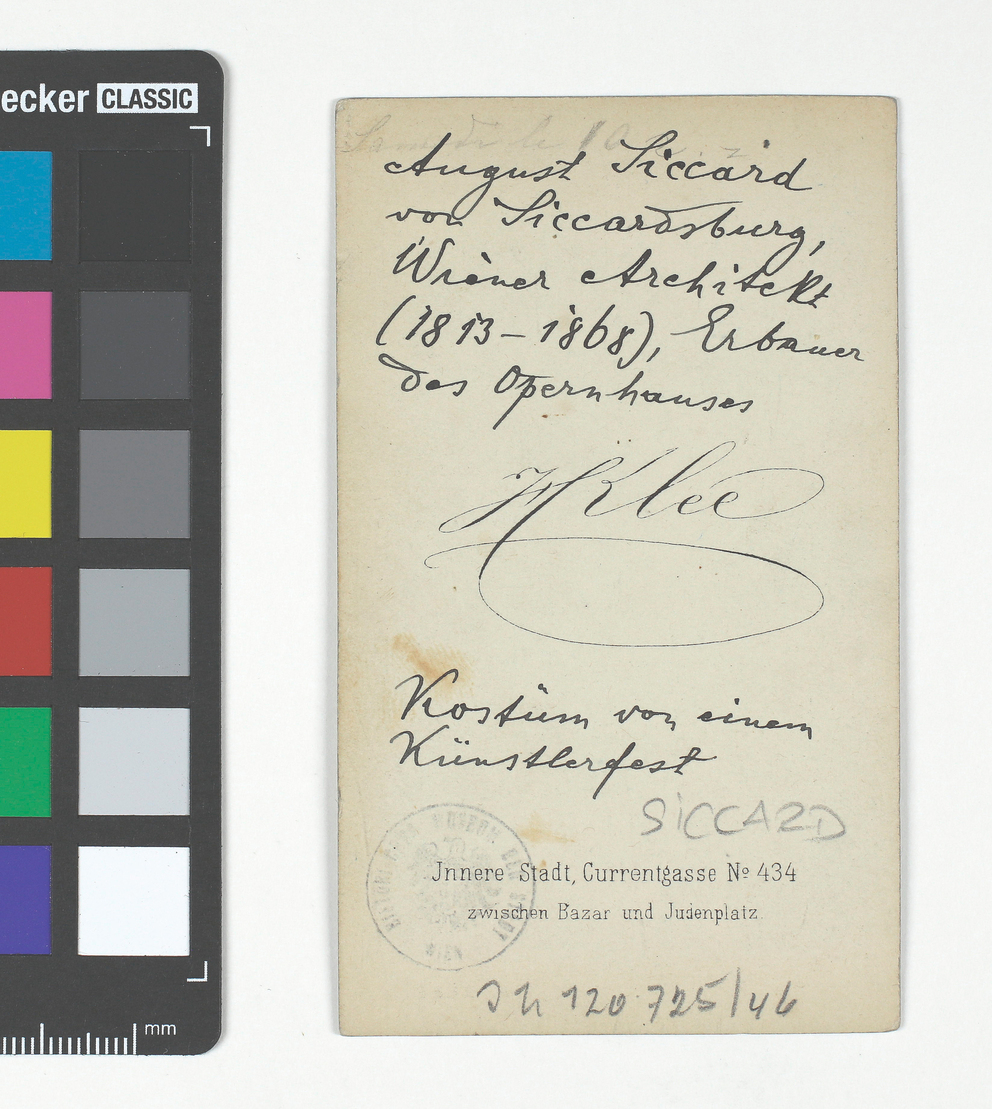 ecker CLASSIC
August Siccard
von Siccardsburg,
Wiener Architekt
(1813-1868), Erbauer
des Opernhauses
Klee
Kostüm von einem
Künstlerfest
SiCCARD
Jnnere Stadt, Currentgasse Nº 434
zwischen Bazar und Judenplatz
MUSEUM DER STADT
WIEN
120 725/46
mm